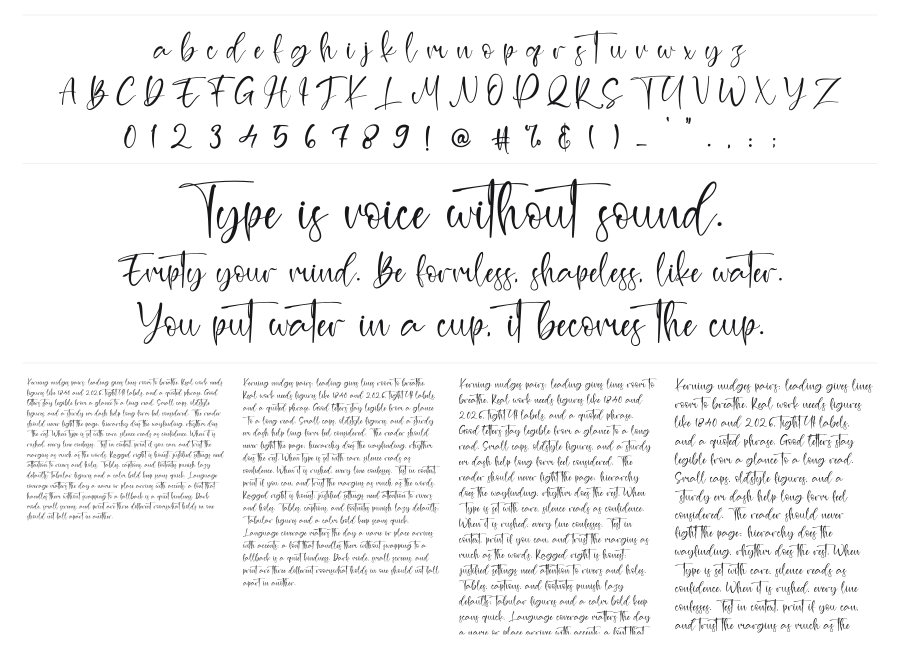 a b c d e f g h i j k l m n o p q r s t u v w x y z
A B C D E F G H I J K L M N O P Q R S T U V W X Y Z
0 1 2 3 4 5 6 7 8 9 ! @ # % & ( ) _ ' " . , : ;
Type is voice without sound.
Empty your mind. Be formless, shapeless, like water.
You put water in a cup, it becomes the cup.
Kerning nudges pairs; leading gives lines room to breathe. Real work needs
figures like 1840 and 2026, tight UI labels, and a quoted phrase. Good
letters stay legible from a glance to a long read. Small caps, oldstyle
figures, and a sturdy em dash help long form feel considered. The reader
should never fight the page; hierarchy does the wayfinding, rhythm does
the rest. When Type is set with care, silence reads as confidence. When it is
rushed, every line confesses. Test in context, print if you can, and trust the
margins as much as the words. Ragged right is honest; justified settings need
attention to rivers and holes. Tables, captions, and footnotes punish lazy
defaults; Tabular figures and a calm bold keep scans quick. Language
coverage matters the day a name or place arrives with accents; a font that
handles them without swapping to a fallback is a quiet kindness. Dark
mode, small screens, and print are three different rooms; what holds in one
should not fall apart in another.
Kerning nudges pairs; leading gives lines room to breathe.
Real work needs figures like 1840 and 2026, tight UI labels,
and a quoted phrase. Good letters stay legible from a glance
to a long read. Small caps, oldstyle figures, and a sturdy
em dash help long form feel considered. The reader should
never fight the page; hierarchy does the wayfinding, rhythm
does the rest. When Type is set with care, silence reads as
confidence. When it is rushed, every line confesses. Test in context,
print if you can, and trust the margins as much as the words.
Ragged right is honest; justified settings need attention to rivers
and holes. Tables, captions, and footnotes punish lazy defaults;
Tabular figures and a calm bold keep scans quick.
Language coverage matters the day a name or place arrives
with accents; a font that handles them without swapping to a
fallback is a quiet kindness. Dark mode, small screens, and
print are three different rooms; what holds in one should not fall
apart in another.
Kerning nudges pairs; leading gives lines room to
breathe. Real work needs figures like 1840 and
2026, tight UI labels, and a quoted phrase.
Good letters stay legible from a glance to a long
read. Small caps, oldstyle figures, and a sturdy
em dash help long form feel considered. The
reader should never fight the page; hierarchy
does the wayfinding, rhythm does the rest. When
Type is set with care, silence reads as confidence.
When it is rushed, every line confesses. Test in
context, print if you can, and trust the margins as
much as the words. Ragged right is honest;
justified settings need attention to rivers and holes.
Tables, captions, and footnotes punish lazy
defaults; Tabular figures and a calm bold keep
scans quick. Language coverage matters the day
a name or place arrives with accents; a font that
Kerning nudges pairs; leading gives lines
room to breathe. Real work needs figures
like 1840 and 2026, tight UI labels,
and a quoted phrase. Good letters stay
legible from a glance to a long read.
Small caps, oldstyle figures, and a
sturdy em dash help long form feel
considered. The reader should never
fight the page; hierarchy does the
wayfinding, rhythm does the rest. When
Type is set with care, silence reads as
confidence. When it is rushed, every line
confesses. Test in context, print if you can,
and trust the margins as much as the